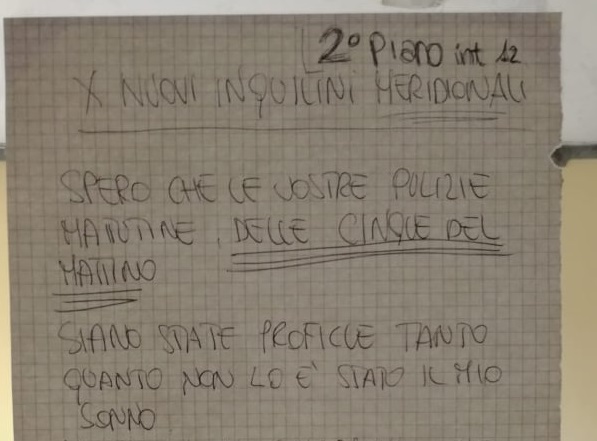 2° PIANO int 12
X NUOVI INQUILINI MERIDIONALI
SPERO CHE LE VOSTRE PULIZIE
MATTUTINE, DELLE CINQUE DEL
MATTINO
SIANO STATE PROFICUE TANTO
QUANTO NON LO E' STATO IL MIO
SONNO.